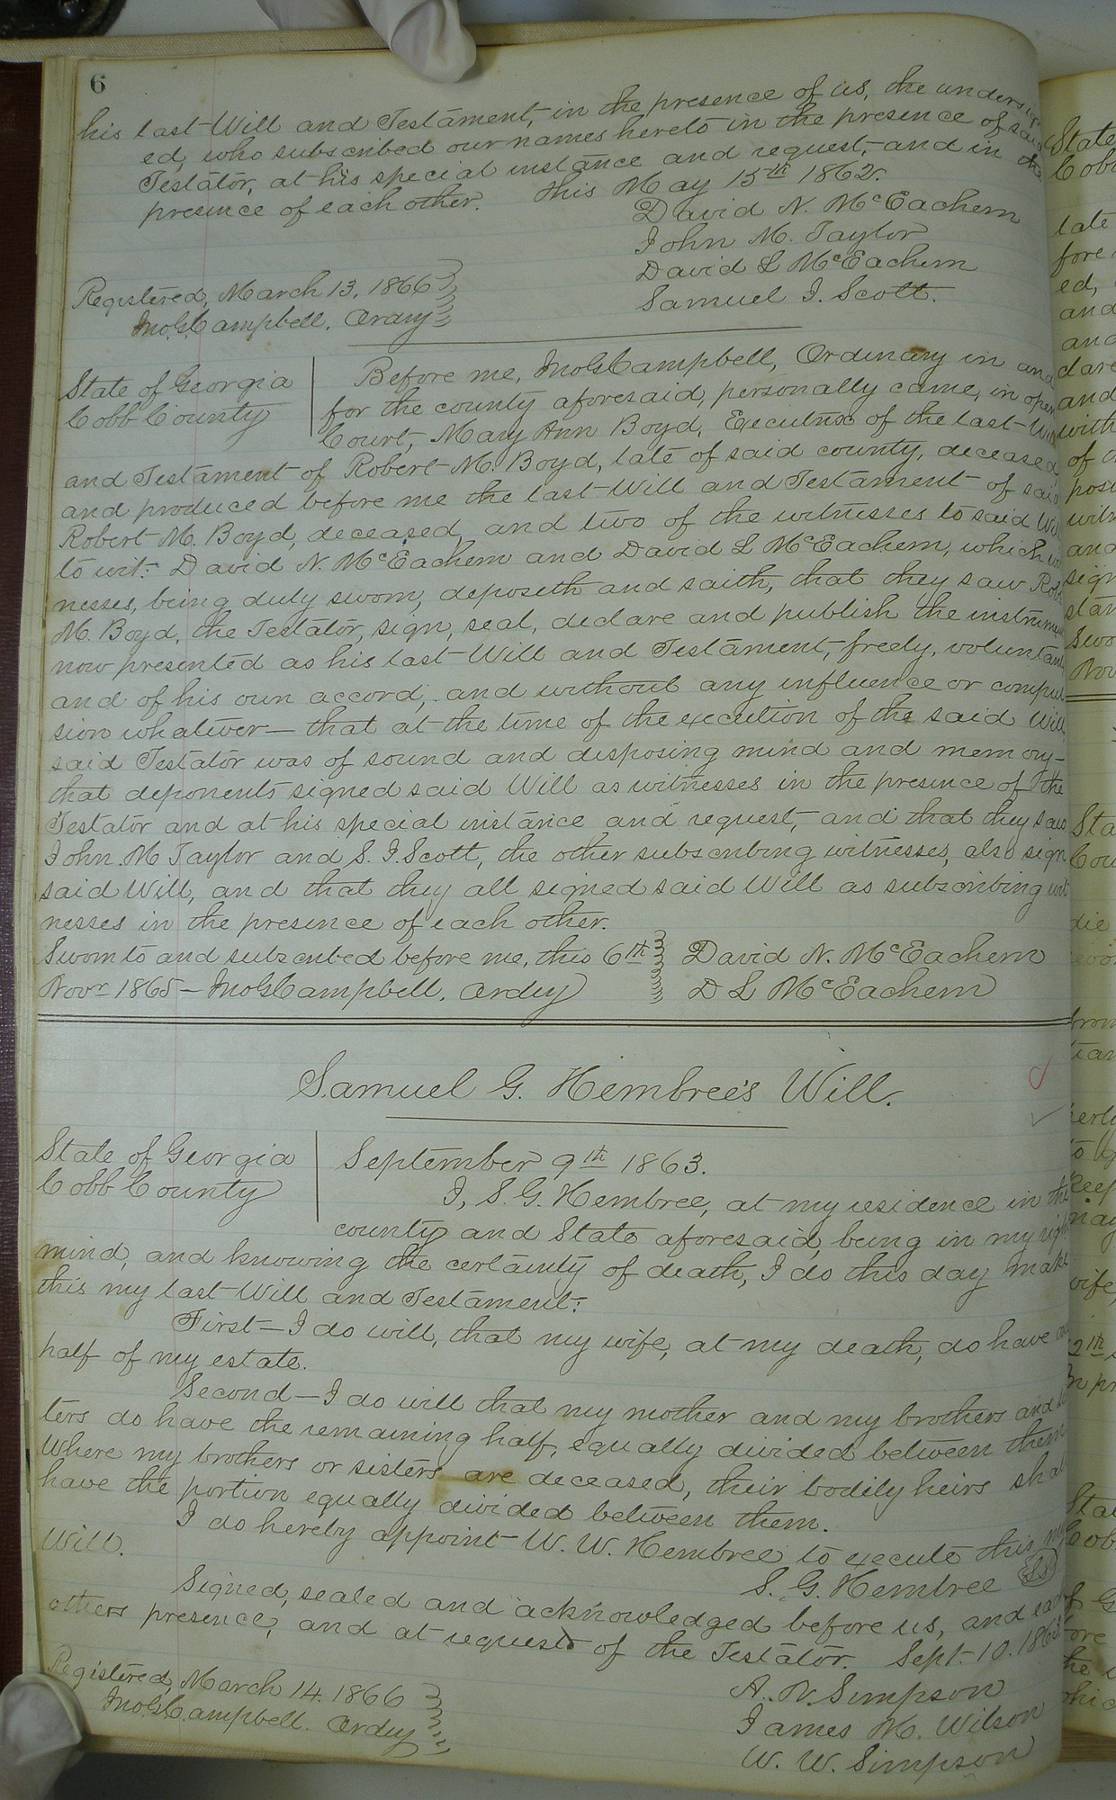 6
his last Will and Testament, in the presence of us, the undersign
ed, who subscribed our names hereto in the presence of said
Testator, at his special instance and request, and in the
presence of each other. This May 15th 1862.
David N. McEachern
John M. Taylor
David L McEachern
Samuel J. Scott.
Registered, March 13, 1866
Jno. G. Campbell, Ordry
State of Georgia
Cobb County
Before me, Jno G Campbell, Ordinary in and
for the county aforesaid, personally came, in open
Court, Mary Ann Boyd, Executrix of the last Will
and Testament of Robert M. Boyd, late of said county, deceased
and produced before me the last Will and Testament of said
Robert M. Boyd, deceased, and two of the witnesses to said Wi
to wit: David N. McEachern and David L McEachern, which wi
nesses, being duly sworn, deposeth and saith, that they saw Rob
M. Boyd, the Testator, sign, seal, declare and publish the instrume
now presented as his last Will and Testament, freely, voluntari
and of his own accord, and without any influence or compul
sion whatever — that at the time of the execution of the said Will
said Testator was of sound and disposing mind and memory —
that deponents signed said Will as witnesses in the presence of the
Testator and at his special instance and request, and that they saw
John M Taylor and S. J. Scott, the other subscribing witnesses, also sign
said Will, and that they all signed said Will as subscribing wit
nesses in the presence of each other.
Sworn to and subscribed before me, this 6th
Novr 1865 — Jno G Campbell, Ordry
David N. McEachern
D L McEachern
Samuel G. Hembree's Will.
State of Georgia
Cobb County
September 9th 1863.
I, S. G. Hembree, at my residence in the
county and State aforesaid, being in my righ
mind, and knowing the certainty of death, I do this day make
this my last Will and Testament:
First — I do will, that my wife, at my death, do have
half of my estate.
Second — I do will that my mother and my brothers and
ters do have the remaining half, equally divided between them
Where my brothers or sisters are deceased, their bodily heirs shal
have the portion equally divided between them.
I do hereby appoint W. W. Hembree to execute this my
Will.
S. G. Hembree LS
Signed, sealed and acknowledged before us, and each
others presence, and at request of the Testator. Sept. 10. 1863
Registered, March 14. 1866
Jno. G. Campbell. Ordry
A. N. Simpson
James M. Wilson
W. W. Simpson